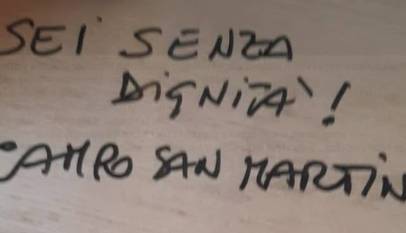 SEI SENZA
DIGNITA'!
CAMPO SAN MARTIN